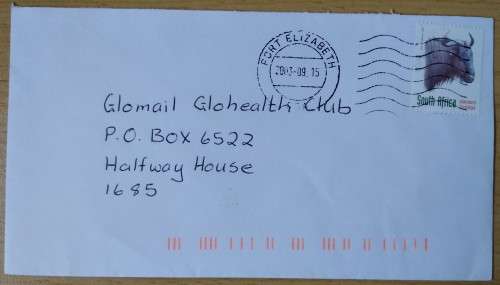 PORT ELIZABETH
2003-09.15
South Africa
Glomail Glohealth Club
P.O. BOX 6522
Halfway House
1685